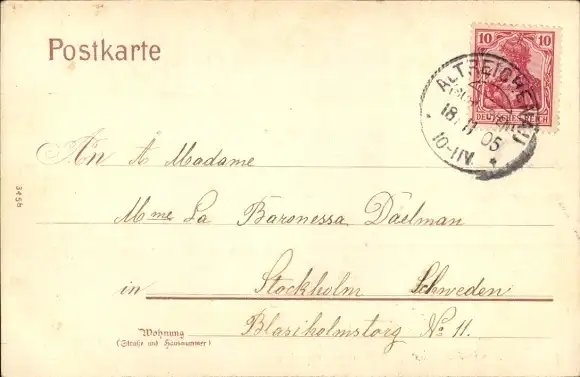 Postkarte
10 10
DEUTSCHES REICH
ALTREICHENAU
18.11.05
10-11V.
An A Madame
Mme La Baronessa Daelman
in Stockholm Schweden
Blasiholmstorg No 11.
Wohnung
(Straße und Hausnummer)
3458